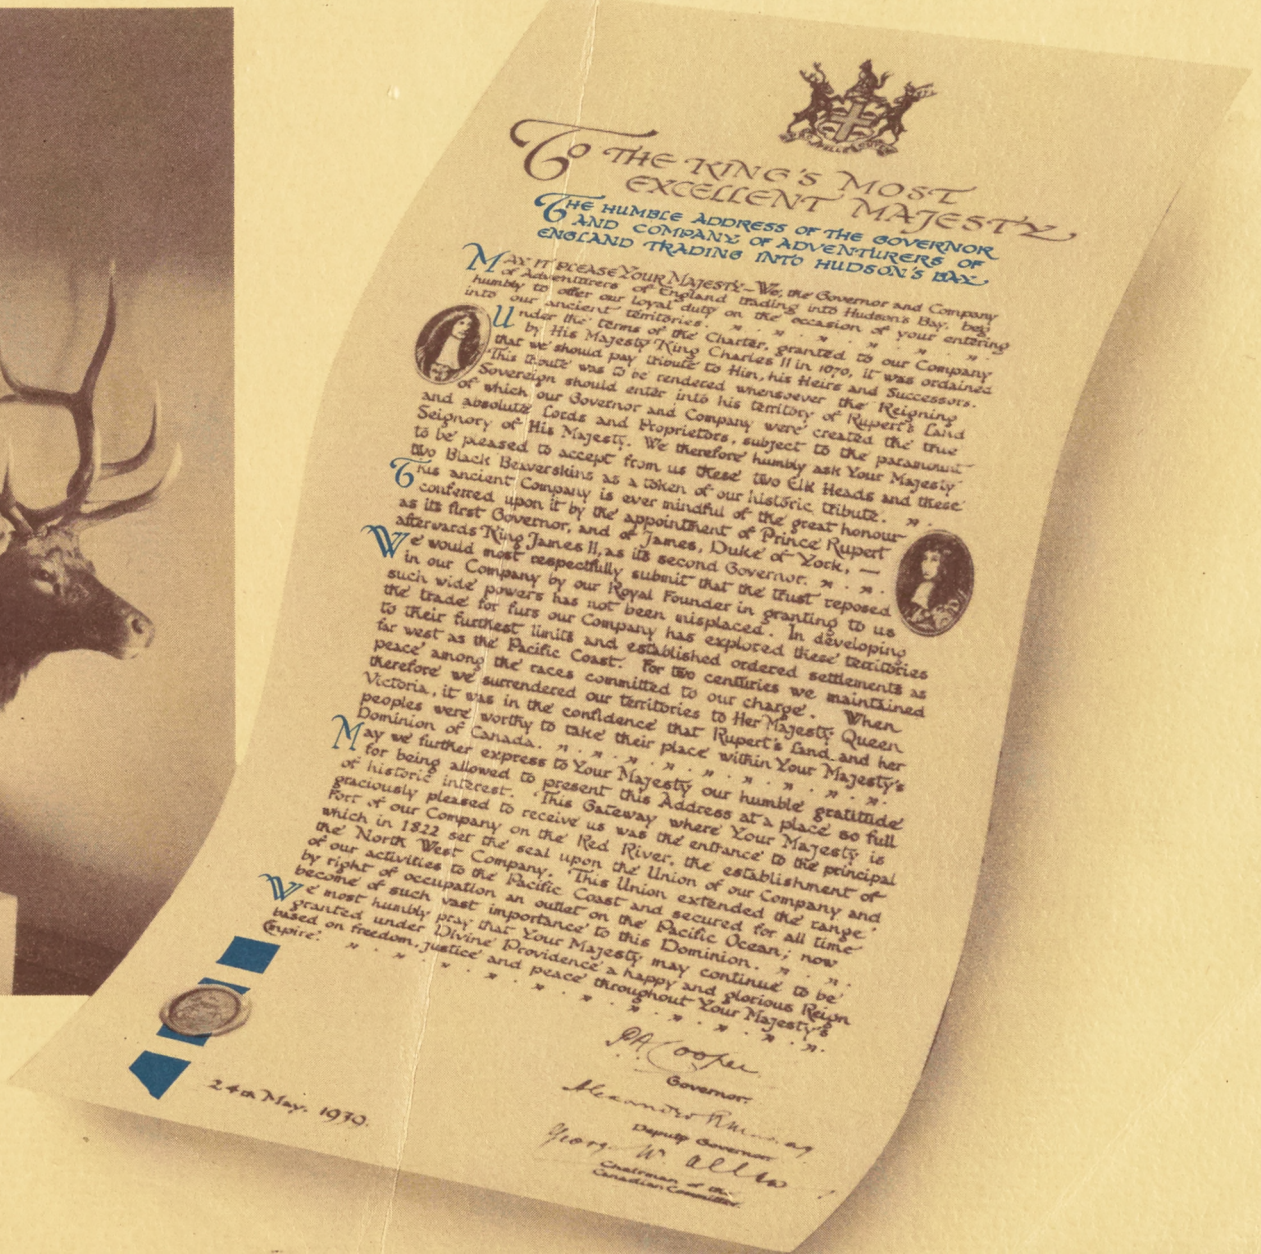 TO THE KING'S MOST
EXCELLENT MAJESTY
THE HUMBLE ADDRESS OF THE GOVERNOR
AND COMPANY OF ADVENTURERS OF
ENGLAND TRADING INTO HUDSON'S BAY
MAY IT PLEASE YOUR MAJESTY—We, the Governor and Company
of Adventurers of England trading into Hudson's Bay, beg
humbly to offer our loyal duty on the occasion of your entering
into our ancient territories.
Under the terms of the Charter, granted to our Company
by His Majesty King Charles II in 1670, it was ordained
that we should pay tribute to Him, his Heirs and Successors.
This tribute was to be rendered whensoever the Reigning
Sovereign should enter into his territory of Rupert's Land
of which our Governor and Company were created the true
and absolute Lords and Proprietors, subject to the paramount
Seignory of His Majesty. We therefore humbly ask Your Majesty
to be pleased to accept from us these two Elk Heads and these
two Black Beaverskins as a token of our historic tribute.
This ancient Company is ever mindful of the great honour
conferred upon it by the appointment of Prince Rupert
as its first Governor, and of James, Duke of York, —
afterwards King James II, as its second Governor.
We would most respectfully submit that the trust reposed
in our Company by our Royal Founder in granting to us
such wide powers has not been misplaced. In developing
the trade for furs our Company has explored these territories
to their furthest limits and established ordered settlements as
far west as the Pacific Coast. For two centuries we maintained
peace among the races committed to our charge. When
therefore we surrendered our territories to Her Majesty Queen
Victoria, it was in the confidence that Rupert's Land and her
peoples were worthy to take their place within Your Majesty's
Dominion of Canada.
May we further express to Your Majesty our humble gratitude
for being allowed to present this Address at a place so full
of historic interest. This Gateway where Your Majesty is
graciously pleased to receive us was the entrance to the principal
Fort of our Company on the Red River, the establishment of
which in 1822 set the seal upon the Union of our Company and
the North West Company. This Union extended the range
of our activities to the Pacific Coast and secured for all time
by right of occupation an outlet on the Pacific Ocean; now
become of such vast importance to this Dominion.
We most humbly pray that Your Majesty may continue to be
granted under Divine Providence a happy and glorious Reign
based on freedom, justice and peace throughout Your Majesty's
Empire.
P.A. Cooper
Governor.
Alexander
Deputy Governor
George W. Allan
Chairman of the
Canadian Committee.
24th May. 1939.